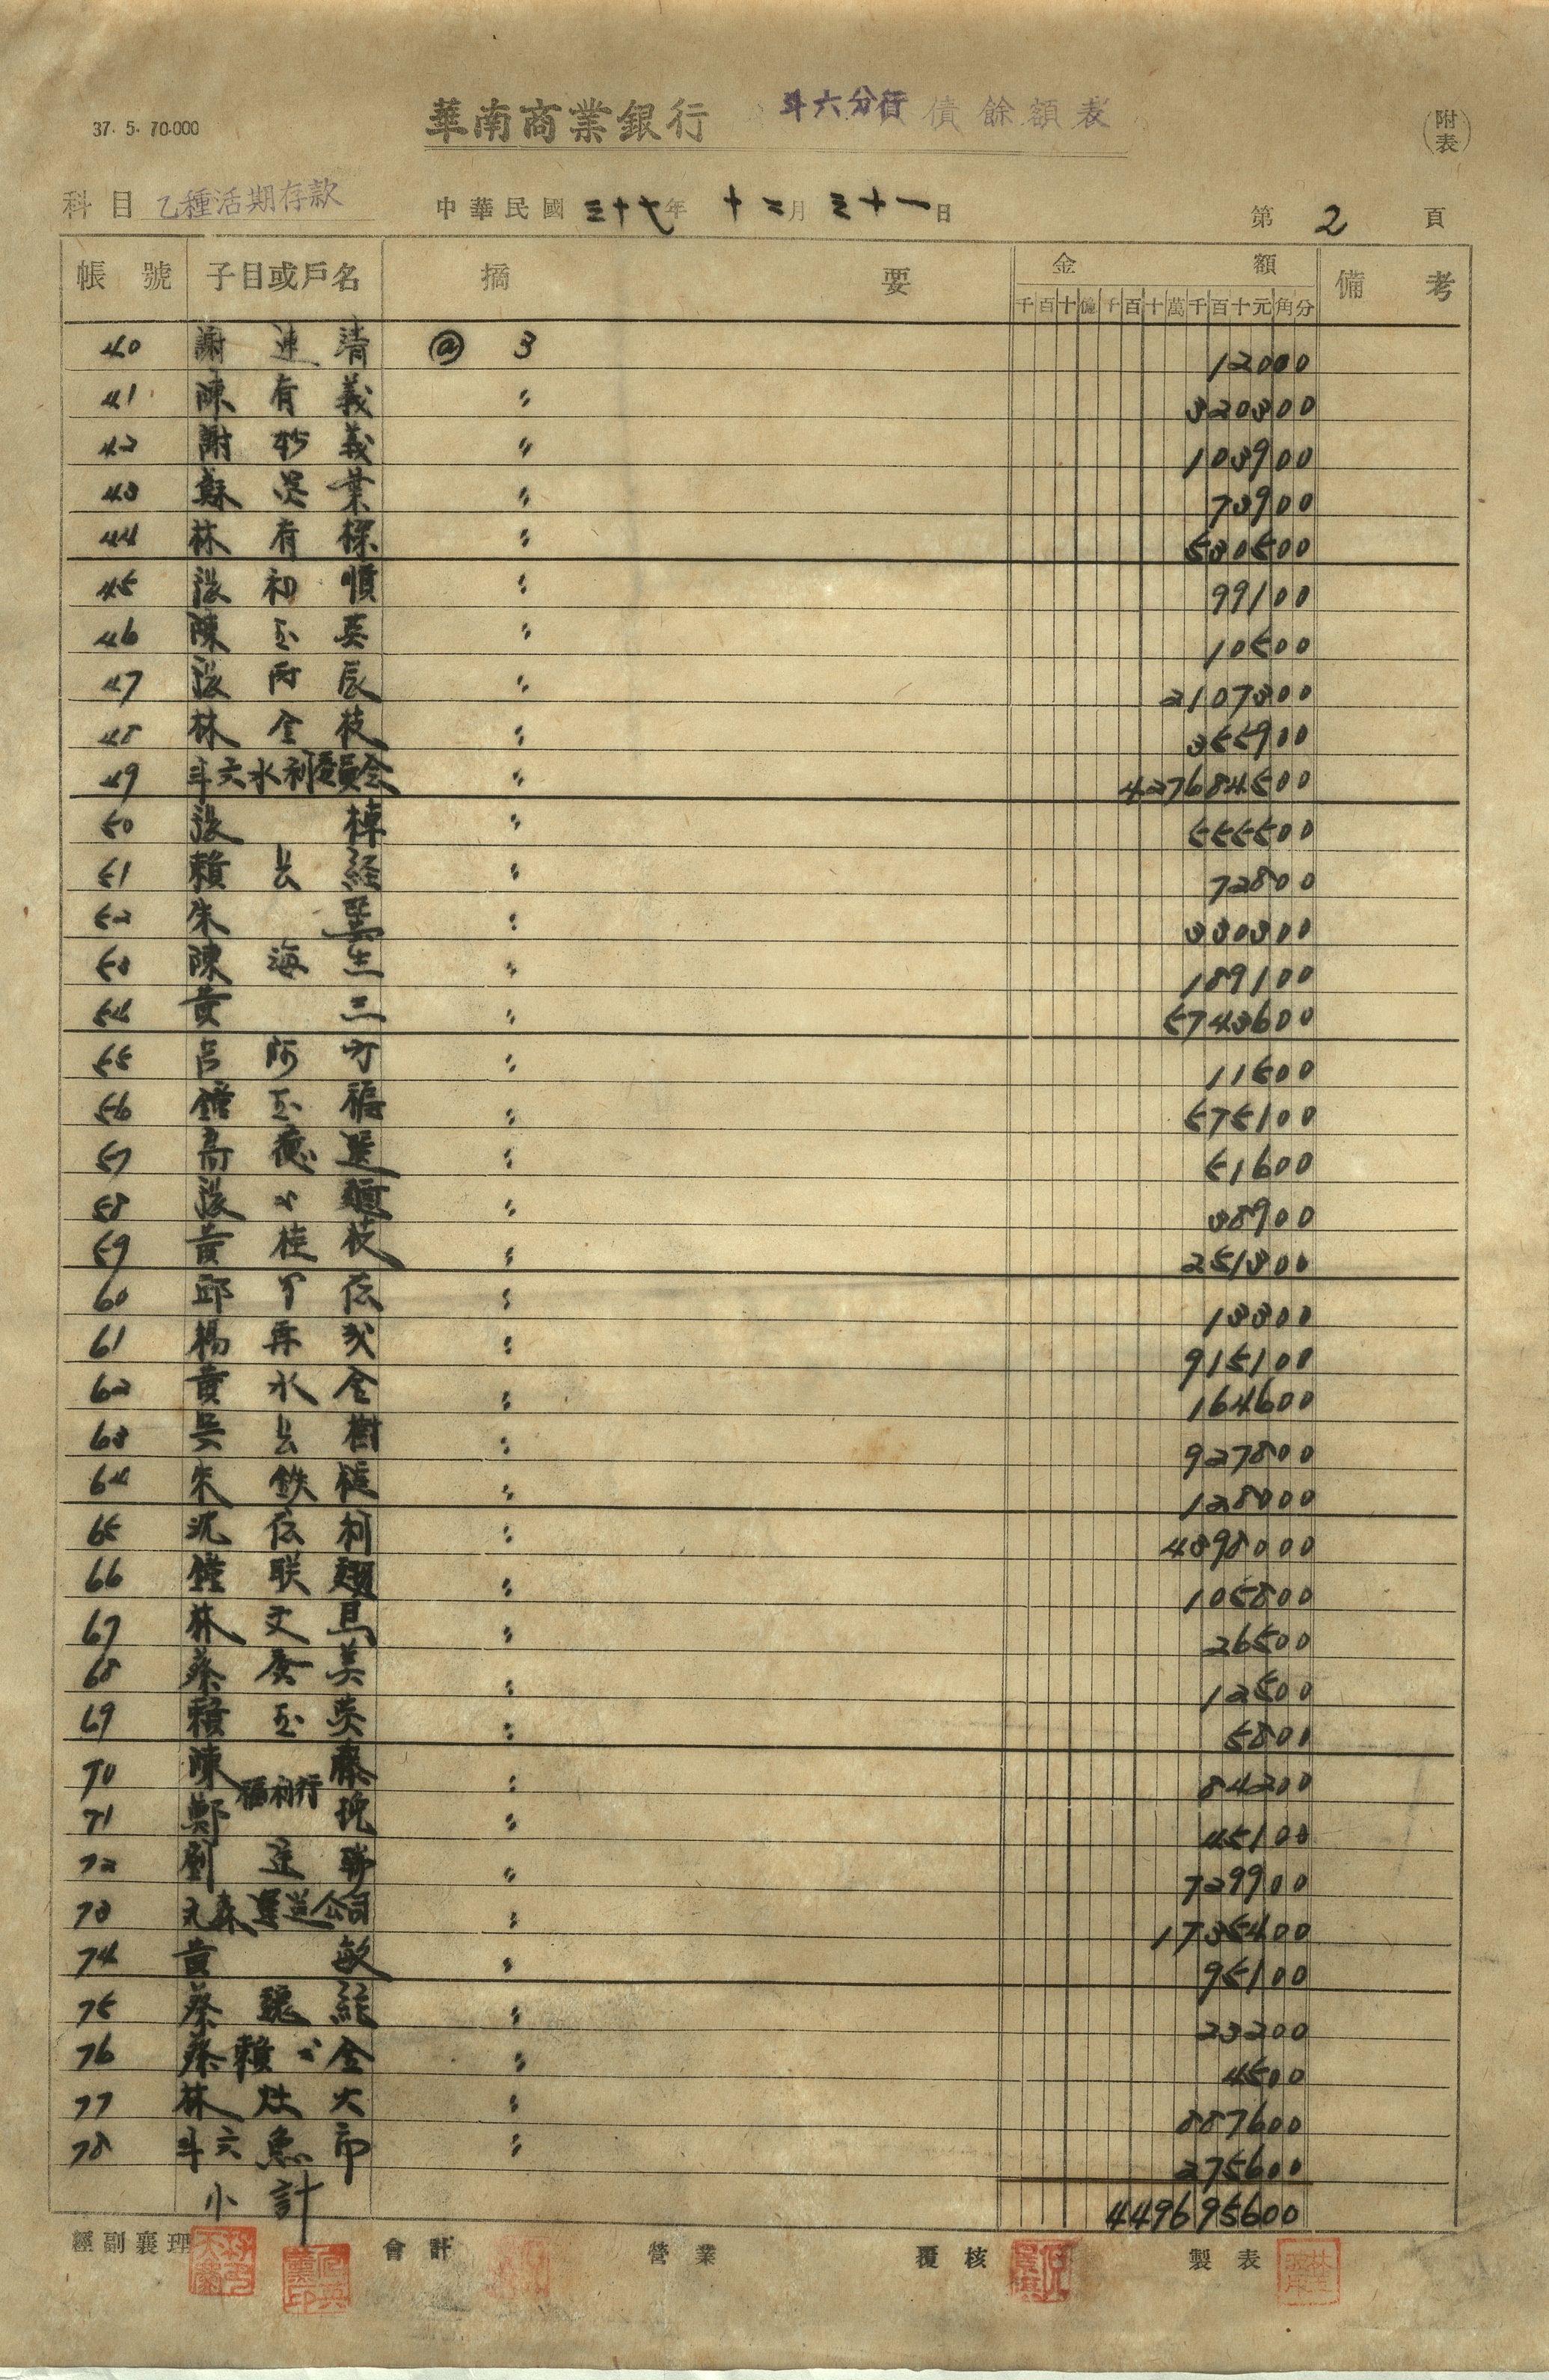 37. 5. 70.000
華南商業銀行 斗六分行 債餘額表
(附表)
科目 乙種活期存款 中華民國三十七年十二月三十一日 第2頁
帳號 子目或戶名 摘要 金額 備考
千百十億千百十萬千百十元角分
40 謝連清 @ 3 12000
41 陳有義 〃 320300
42 謝妙義 〃 103900
43 蘇 葉 〃 73900
44 林有 〃 530500
45 張初順 〃 99100
46 陳玉英 〃 10500
47 張阿辰 〃 2107300
48 林金枝 〃 355900
49 斗六水利委員会 〃 427684500
50 張棟 〃 555500
51 賴長経 〃 72800
52 朱 〃 330300
53 陳海生 〃 189100
54 黄三 〃 5743600
55 呂阿守 〃 11500
56 鐘玉福 〃 575100
57 高德選 〃 51600
58 張 〃 38900
59 黄桂枝 〃 251300
60 邱 伝 〃 13300
61 楊再 〃 915100
62 黄水金 〃 164600
63 吳長樹 〃 927800
64 朱鉄 〃 128000
65 沈伝利 〃 4398000
66 鐘联 〃 105800
67 林文 〃 26500
68 蔡 美 〃 12500
69 賴玉英 〃 5800
70 陳藤 〃 84200
71 鄭 福利行 〃 45100
72 劉 〃 729900
73 森運送公司 〃 1735400
74 黄敏 〃 95100
75 蔡 〃 23200
76 蔡賴 金 〃 4500
77 林灶火 〃 887600
78 斗六魚市 〃 275600
小計 449695600
經副襄理 會計 營業 覆核 製表